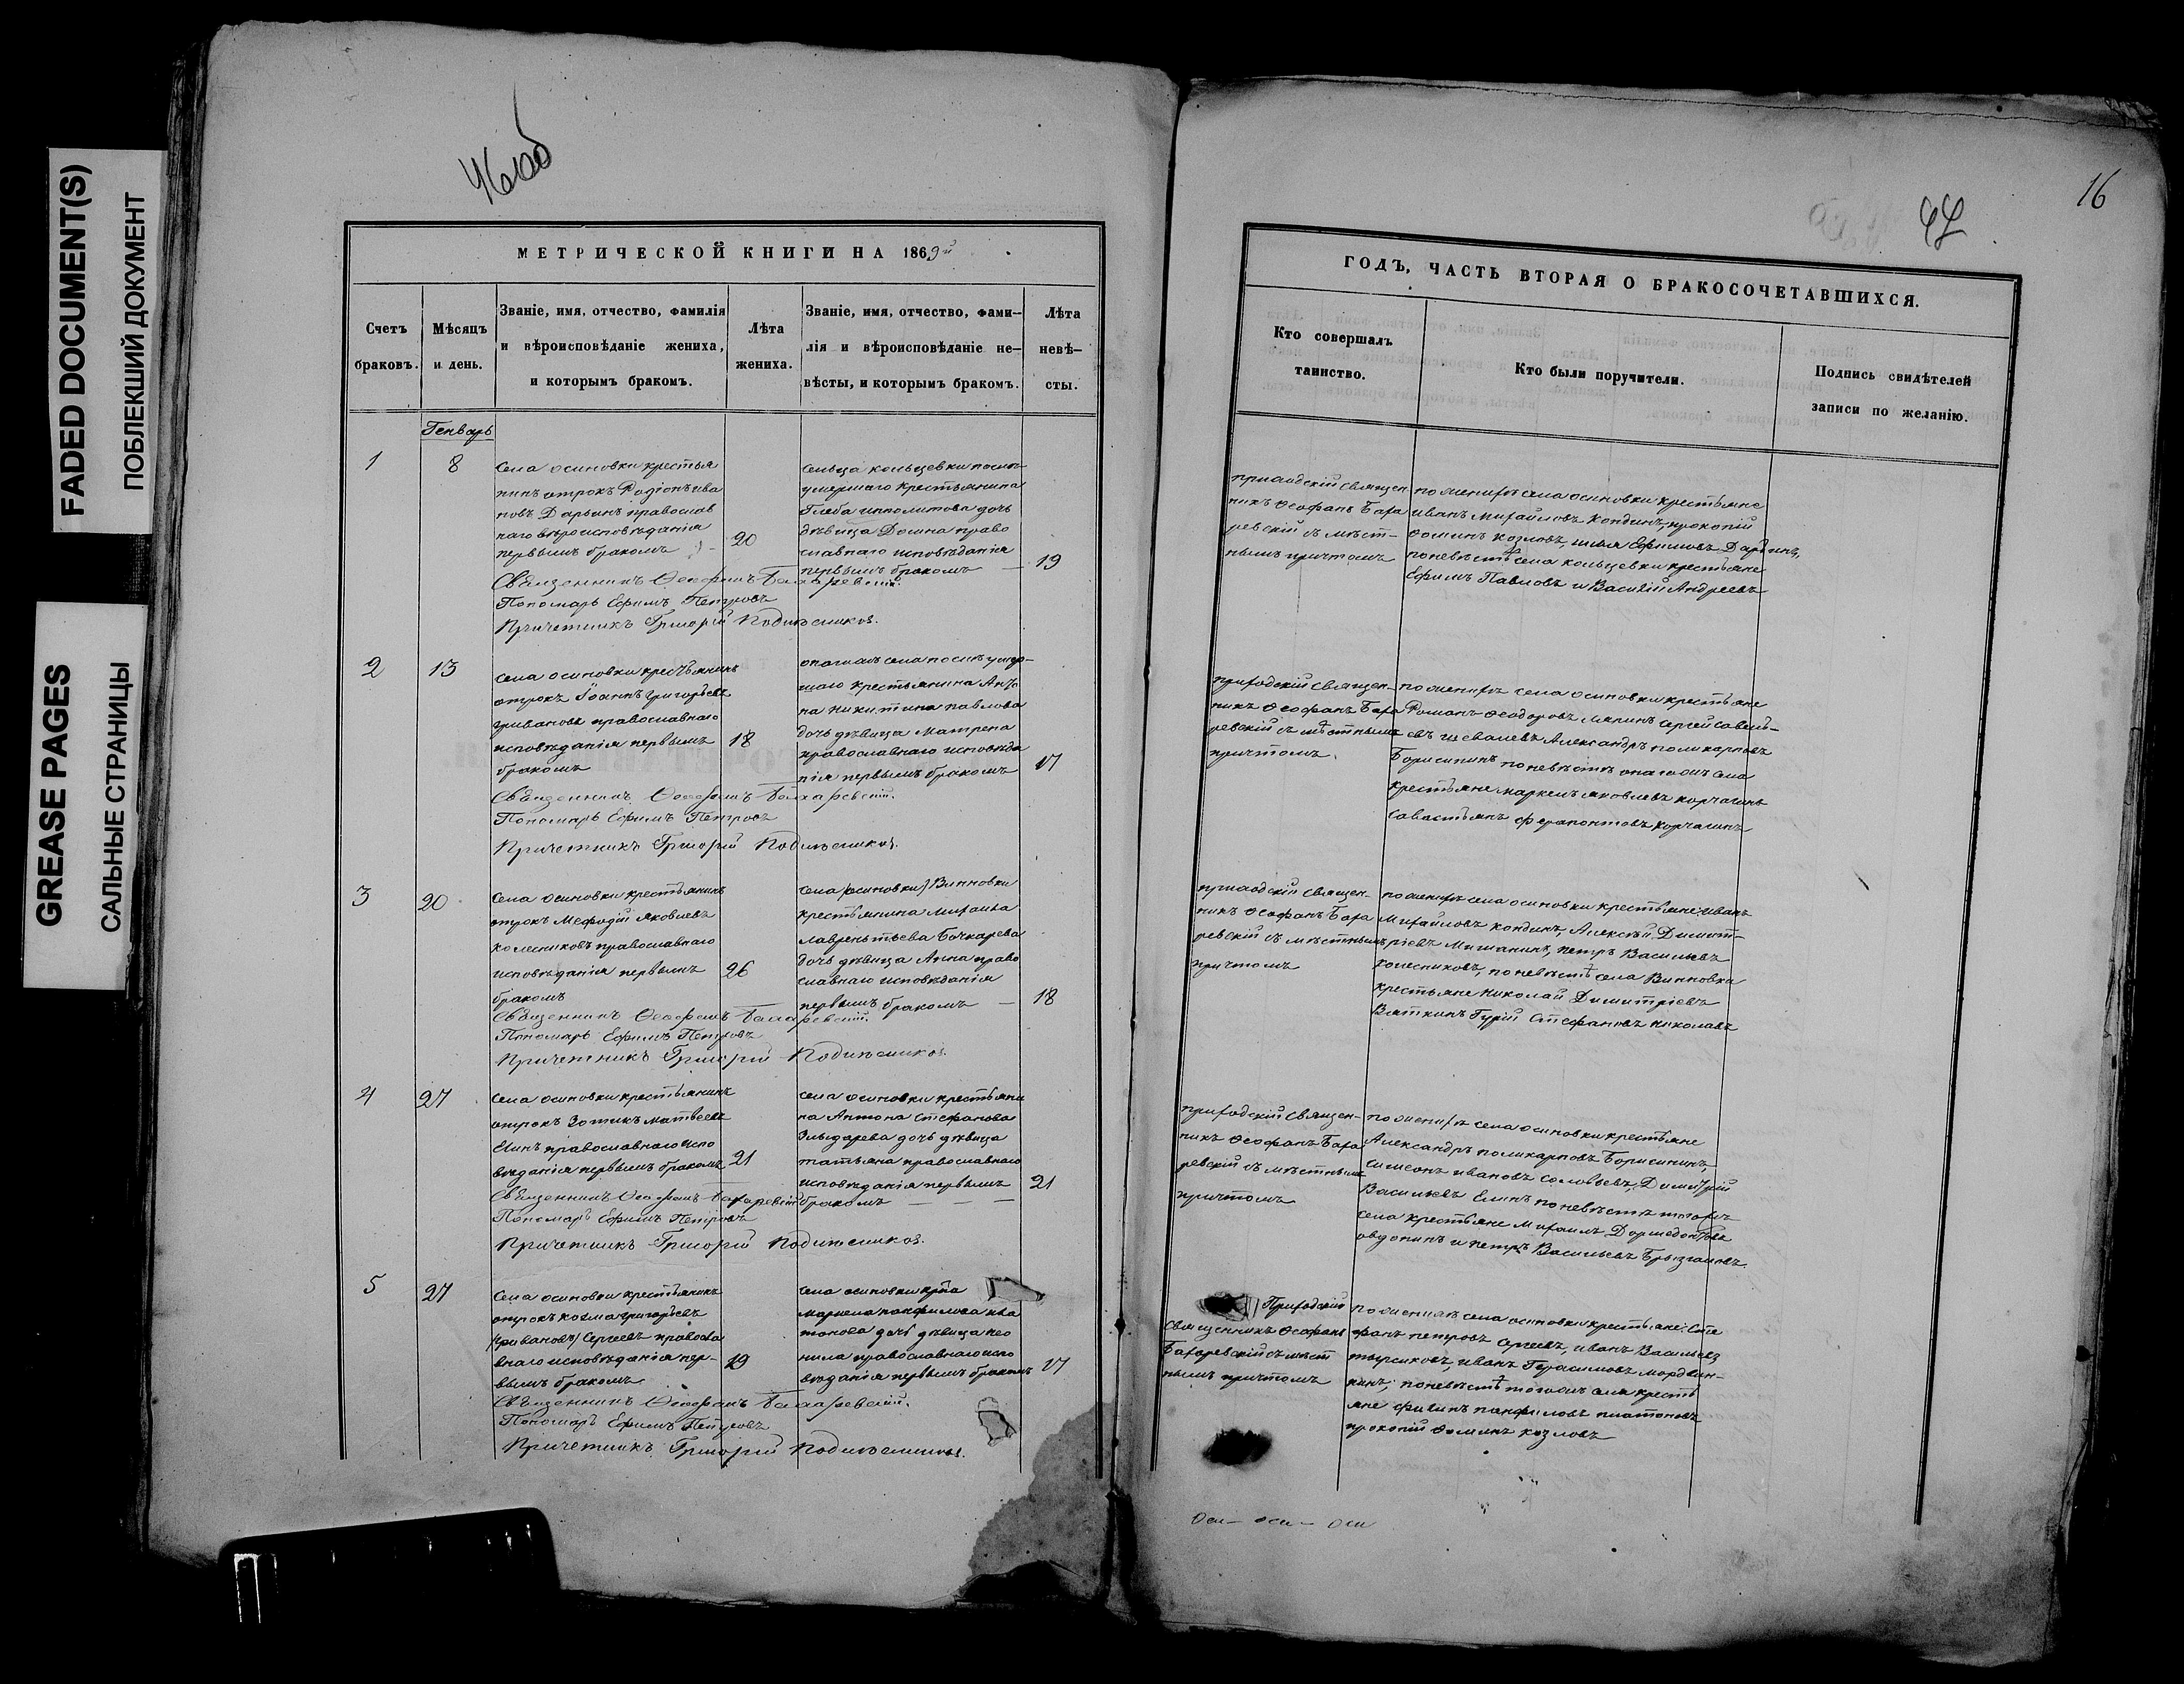 FADED DOCUMENT(S)
ПОБЛЕКШИЙ ДОКУМЕНТ
GREASE PAGES
САЛЬНЫЕ СТРАНИЦЫ
46об
МЕТРИЧЕСКОЙ КНИГИ НА 1869й
Счетъ браковъ.
Мѣсяцъ и день.
Званіе, имя, отчество, фамилія
и вѣроисповѣданіе жениха,
и которымъ бракомъ.
Лѣта жениха.
Званіе, имя, отчество, фами-
лія и вѣроисповѣданіе не-
вѣсты, и которымъ бракомъ.
Лѣта невѣ-
сты.
Генварь
1
8
села осиновки крестья
нинъ отрокъ Родіонъ ива
новъ Дарьинъ православ
наго вѣроисповѣданія
первымъ бракомъ
20
сельца кольцевки послѣ
умершаго крестьянина
Глеба ипполитова дочь
дѣвица Домна право
славнаго исповѣданія
первымъ бракомъ
19
Священникъ Ѳеофанъ Бахаревскій.
Пономарь Ефимъ Петровъ
Причетникъ Григорій
2
13
села осиновки крестьянинъ
отрокъ Іоаннъ григорьевъ
православнаго
исповѣданія первымъ
бракомъ
18
онагожъ села послѣ умер-
шаго крестьянина
никитина павлова
дочь дѣвица Матрена
православнаго исповѣда
нія первымъ бракомъ
17
Священникъ Ѳеофанъ Бахаревскій.
Пономарь Ефимъ Петровъ
Причетникъ Григорій
3
20
села осиновки крестьянинъ
отрокъ Мефодій яковлевъ
колесниковъ православнаго
исповѣданія первымъ
бракомъ
26
села (осиновки) Винновки
крестьянина михаила
лаврентьева Бочкарева
дочь дѣвица Анна право
славнаго исповѣданія
первымъ бракомъ
18
Священникъ Ѳеофанъ Бахаревскій
Пономарь Ефимъ Петровъ
Причетникъ Григорій
4
27
села осиновки крестьянинъ
отрокъ Зотикъ матвеевъ
Елинъ православнаго испо
вѣданія первымъ бракомъ
21
села осиновки крестьяни
на Антона стефанова
дочь дѣвица
татьяна православнаго
исповѣданія первымъ
бракомъ
21
Священникъ Ѳеофанъ Бахаревскій
Пономарь Ефимъ Петровъ
Причетникъ Григорій
5
27
села осиновки крестьянинъ
отрокъ козма григорьевъ
Сергеевъ правосла
внаго исповѣданія пер-
вымъ бракомъ
19
села осиновки
маркела панфилова пла
тонова дочь дѣвица нео
нила православнаго испо
вѣданія первымъ бракомъ
17
Священникъ Ѳеофанъ Бахаревскій.
Пономарь Ефимъ Петровъ
Причетникъ Григорій
16
47
ГОДЪ, ЧАСТЬ ВТОРАЯ О БРАКОСОЧЕТАВШИХСЯ.
Кто совершалъ
таинство.
Кто были поручители.
Подпись свидѣтелей
записи по желанію.
приходскій священ
никъ Ѳеофанъ Баха
ревскій съ мѣст-
нымъ причтомъ
по женихѣ села осиновки крестьяне
иванъ михайловъ кондинъ, прокопій
Ѳоминъ козловъ, илья Ефимовъ Дарьинъ,
по невѣстѣ села кольцевки крестьяне
Ефимъ Павловъ и Василій Андреевъ
приходскій священ-
никъ Ѳеофанъ Баха
ревскій съ мѣстнымъ
причтомъ.
по женихѣ села осиновки крестьяне
Романъ Ѳеодоровъ сергей савель-
евъ Александръ поликарповъ
Борисинъ по невѣстѣ онагожъ села
крестьяне маркелъ яковлевъ корчагинъ
савастьянъ ферапонтовъ корчагинъ
приходскій священ-
никъ Ѳеофанъ Баха
ревскій съ мѣстнымъ
причтомъ
по женихѣ села осиновки крестьяне: иванъ
Михайловъ кондинъ, Алексѣй Димит-
ріевъ Мишанинъ, петръ Васильевъ
колесниковъ, по невѣстѣ села Винновки
крестьяне николай Димитріевъ
Вяткинъ Гурій Стефановъ
приходскій священ-
никъ Ѳеофанъ Баха
ревскій съ мѣстнымъ
причтомъ
по женихѣ села осиновки крестьяне
Александръ поликарповъ Борисинъ,
симеонъ ивановъ соловьевъ, Димитрій
Васильевъ Елинъ по невѣстѣ тогожъ
села крестьяне Михаилъ Дормедонтовъ
овдонинъ и петръ Васильевъ Брызгаловъ.
Приходскій
священникъ Ѳеофанъ
Бахаревскій съ мѣст
нымъ причтомъ
по женихѣ села осиновки крестьяне: Сте
фанъ петровъ сергеевъ, иванъ Васильевъ
иванъ Герасимовъ мордвин-
кинъ; по невѣстѣ тогожъ села кресть
яне филипъ панфиловъ платоновъ
прокопій Ѳоминъ козловъ
Оси- оси - оси